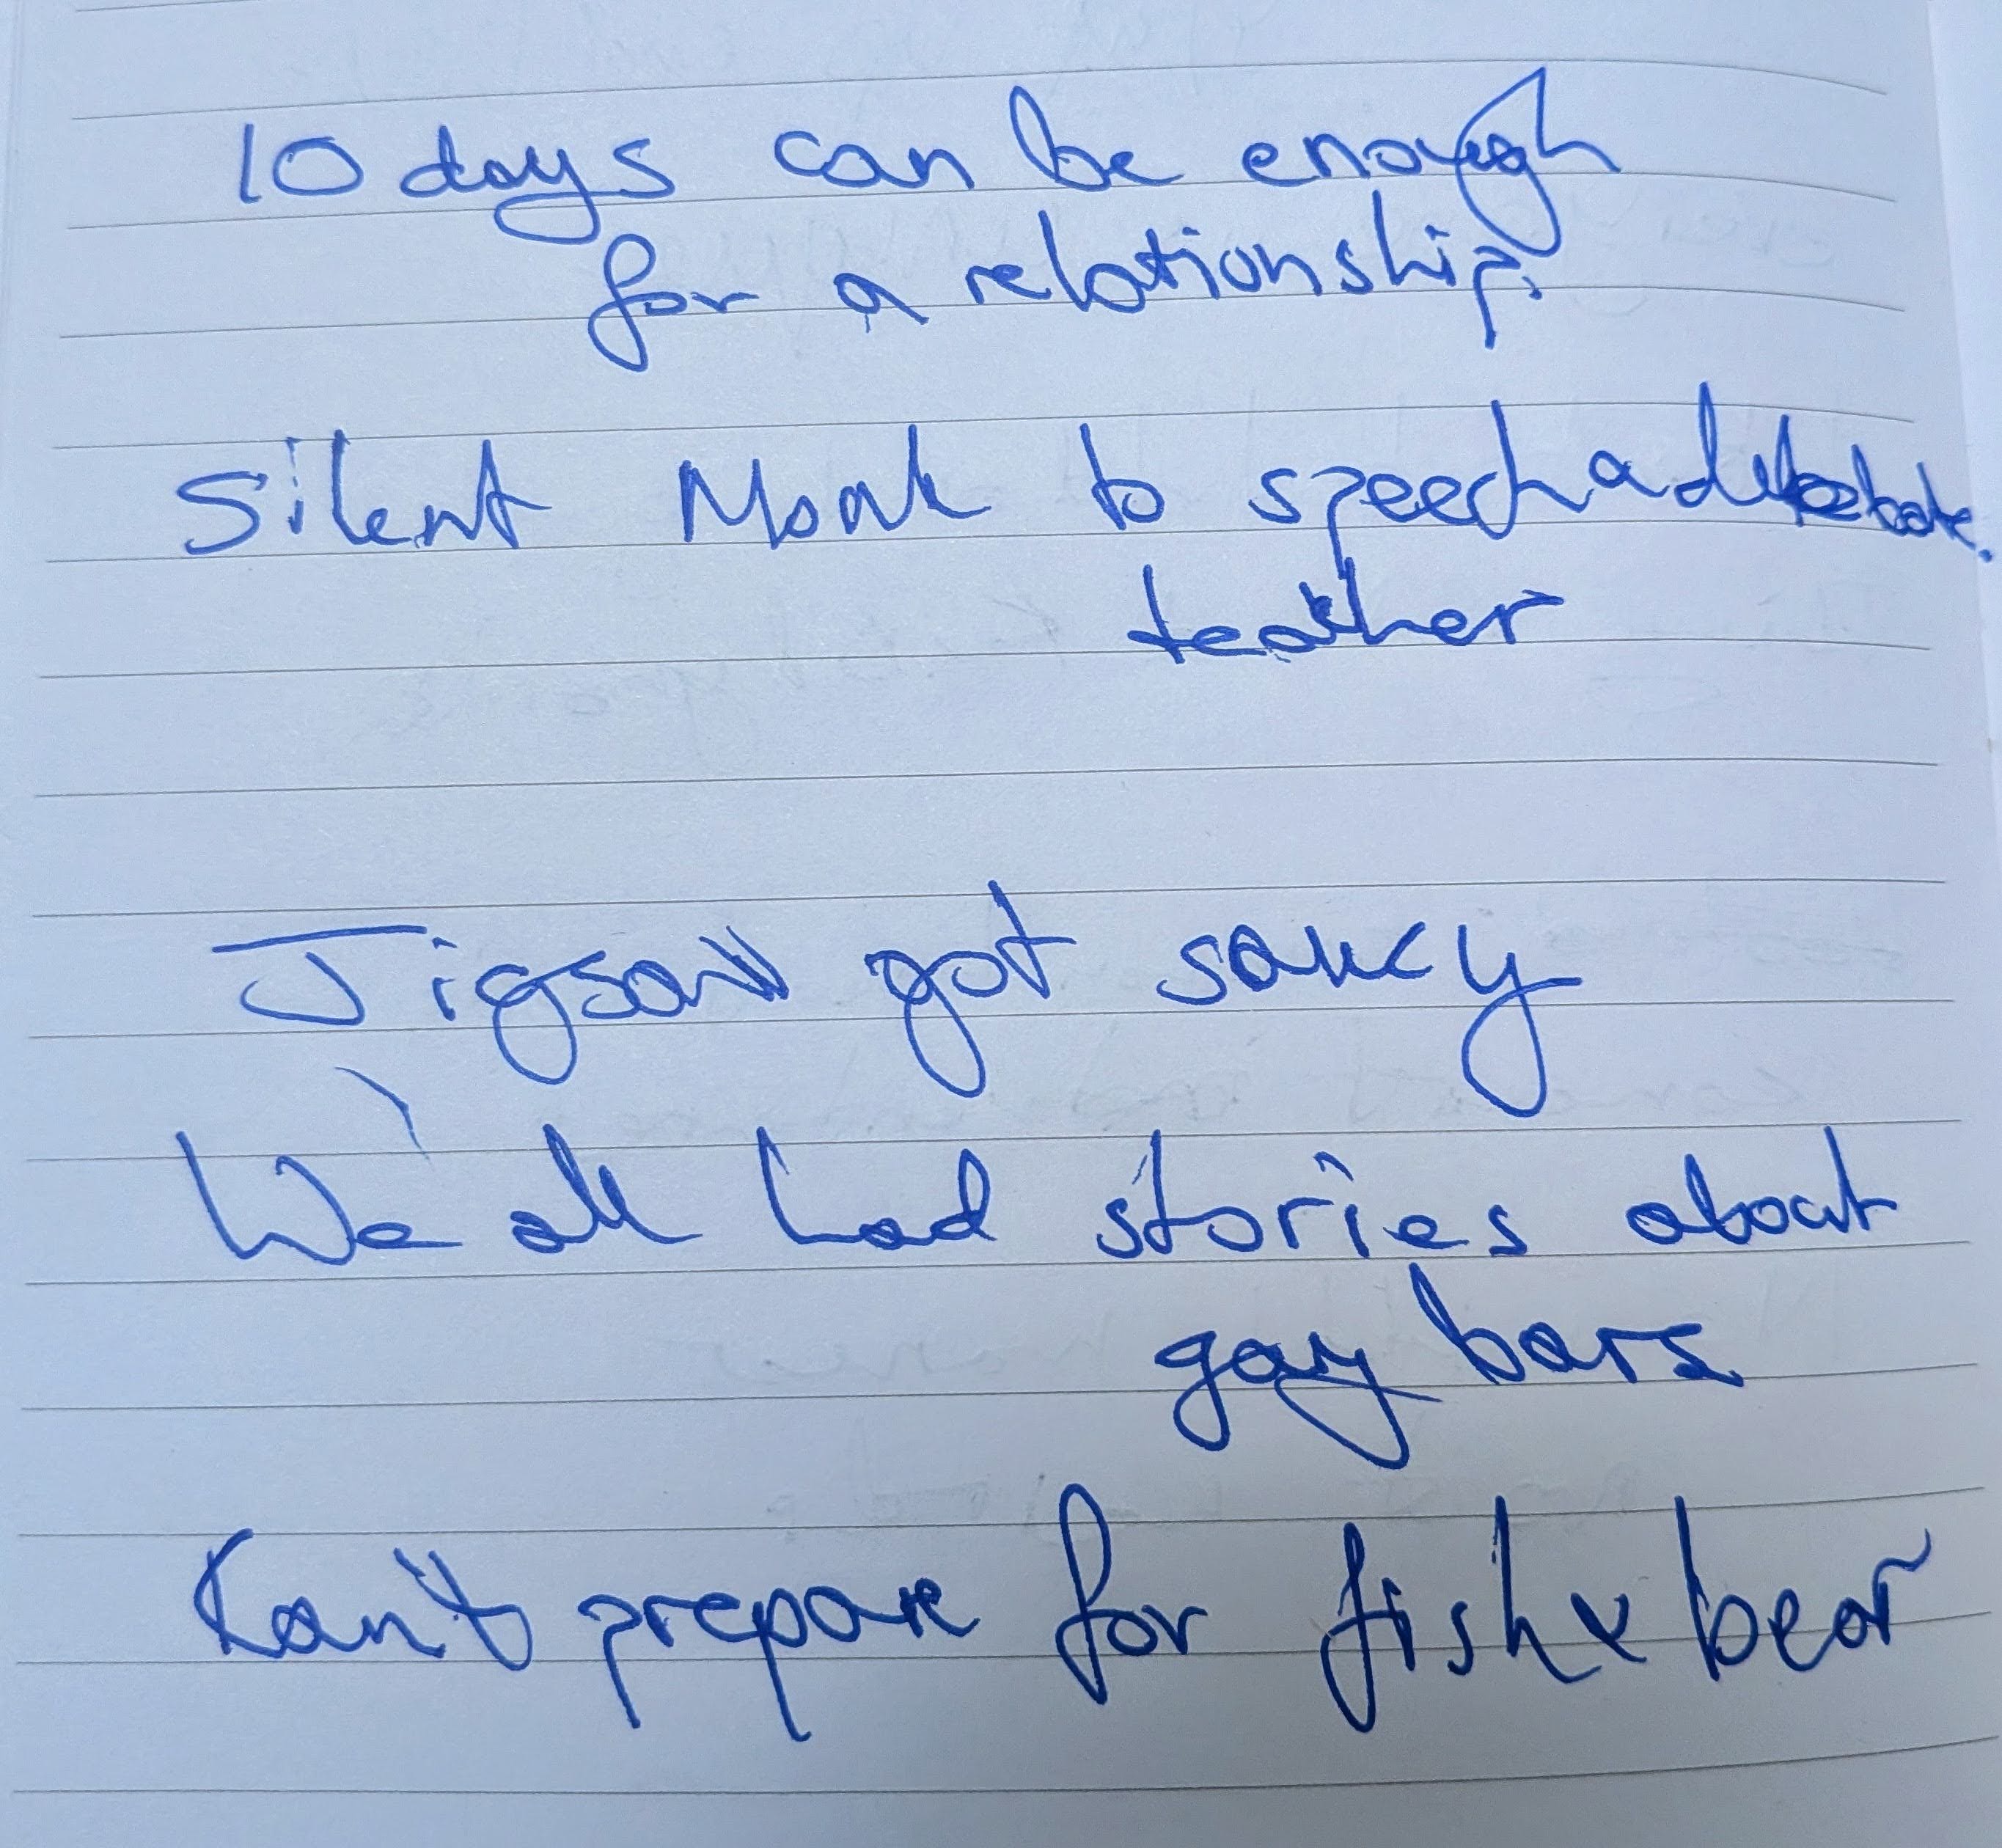 10 days can be enough
for a relationship.
Silent Monk to speech a debate.
teacher
Jigsaw got saucy
We all had stories about
gay bars
Can't prepare for fish & bear